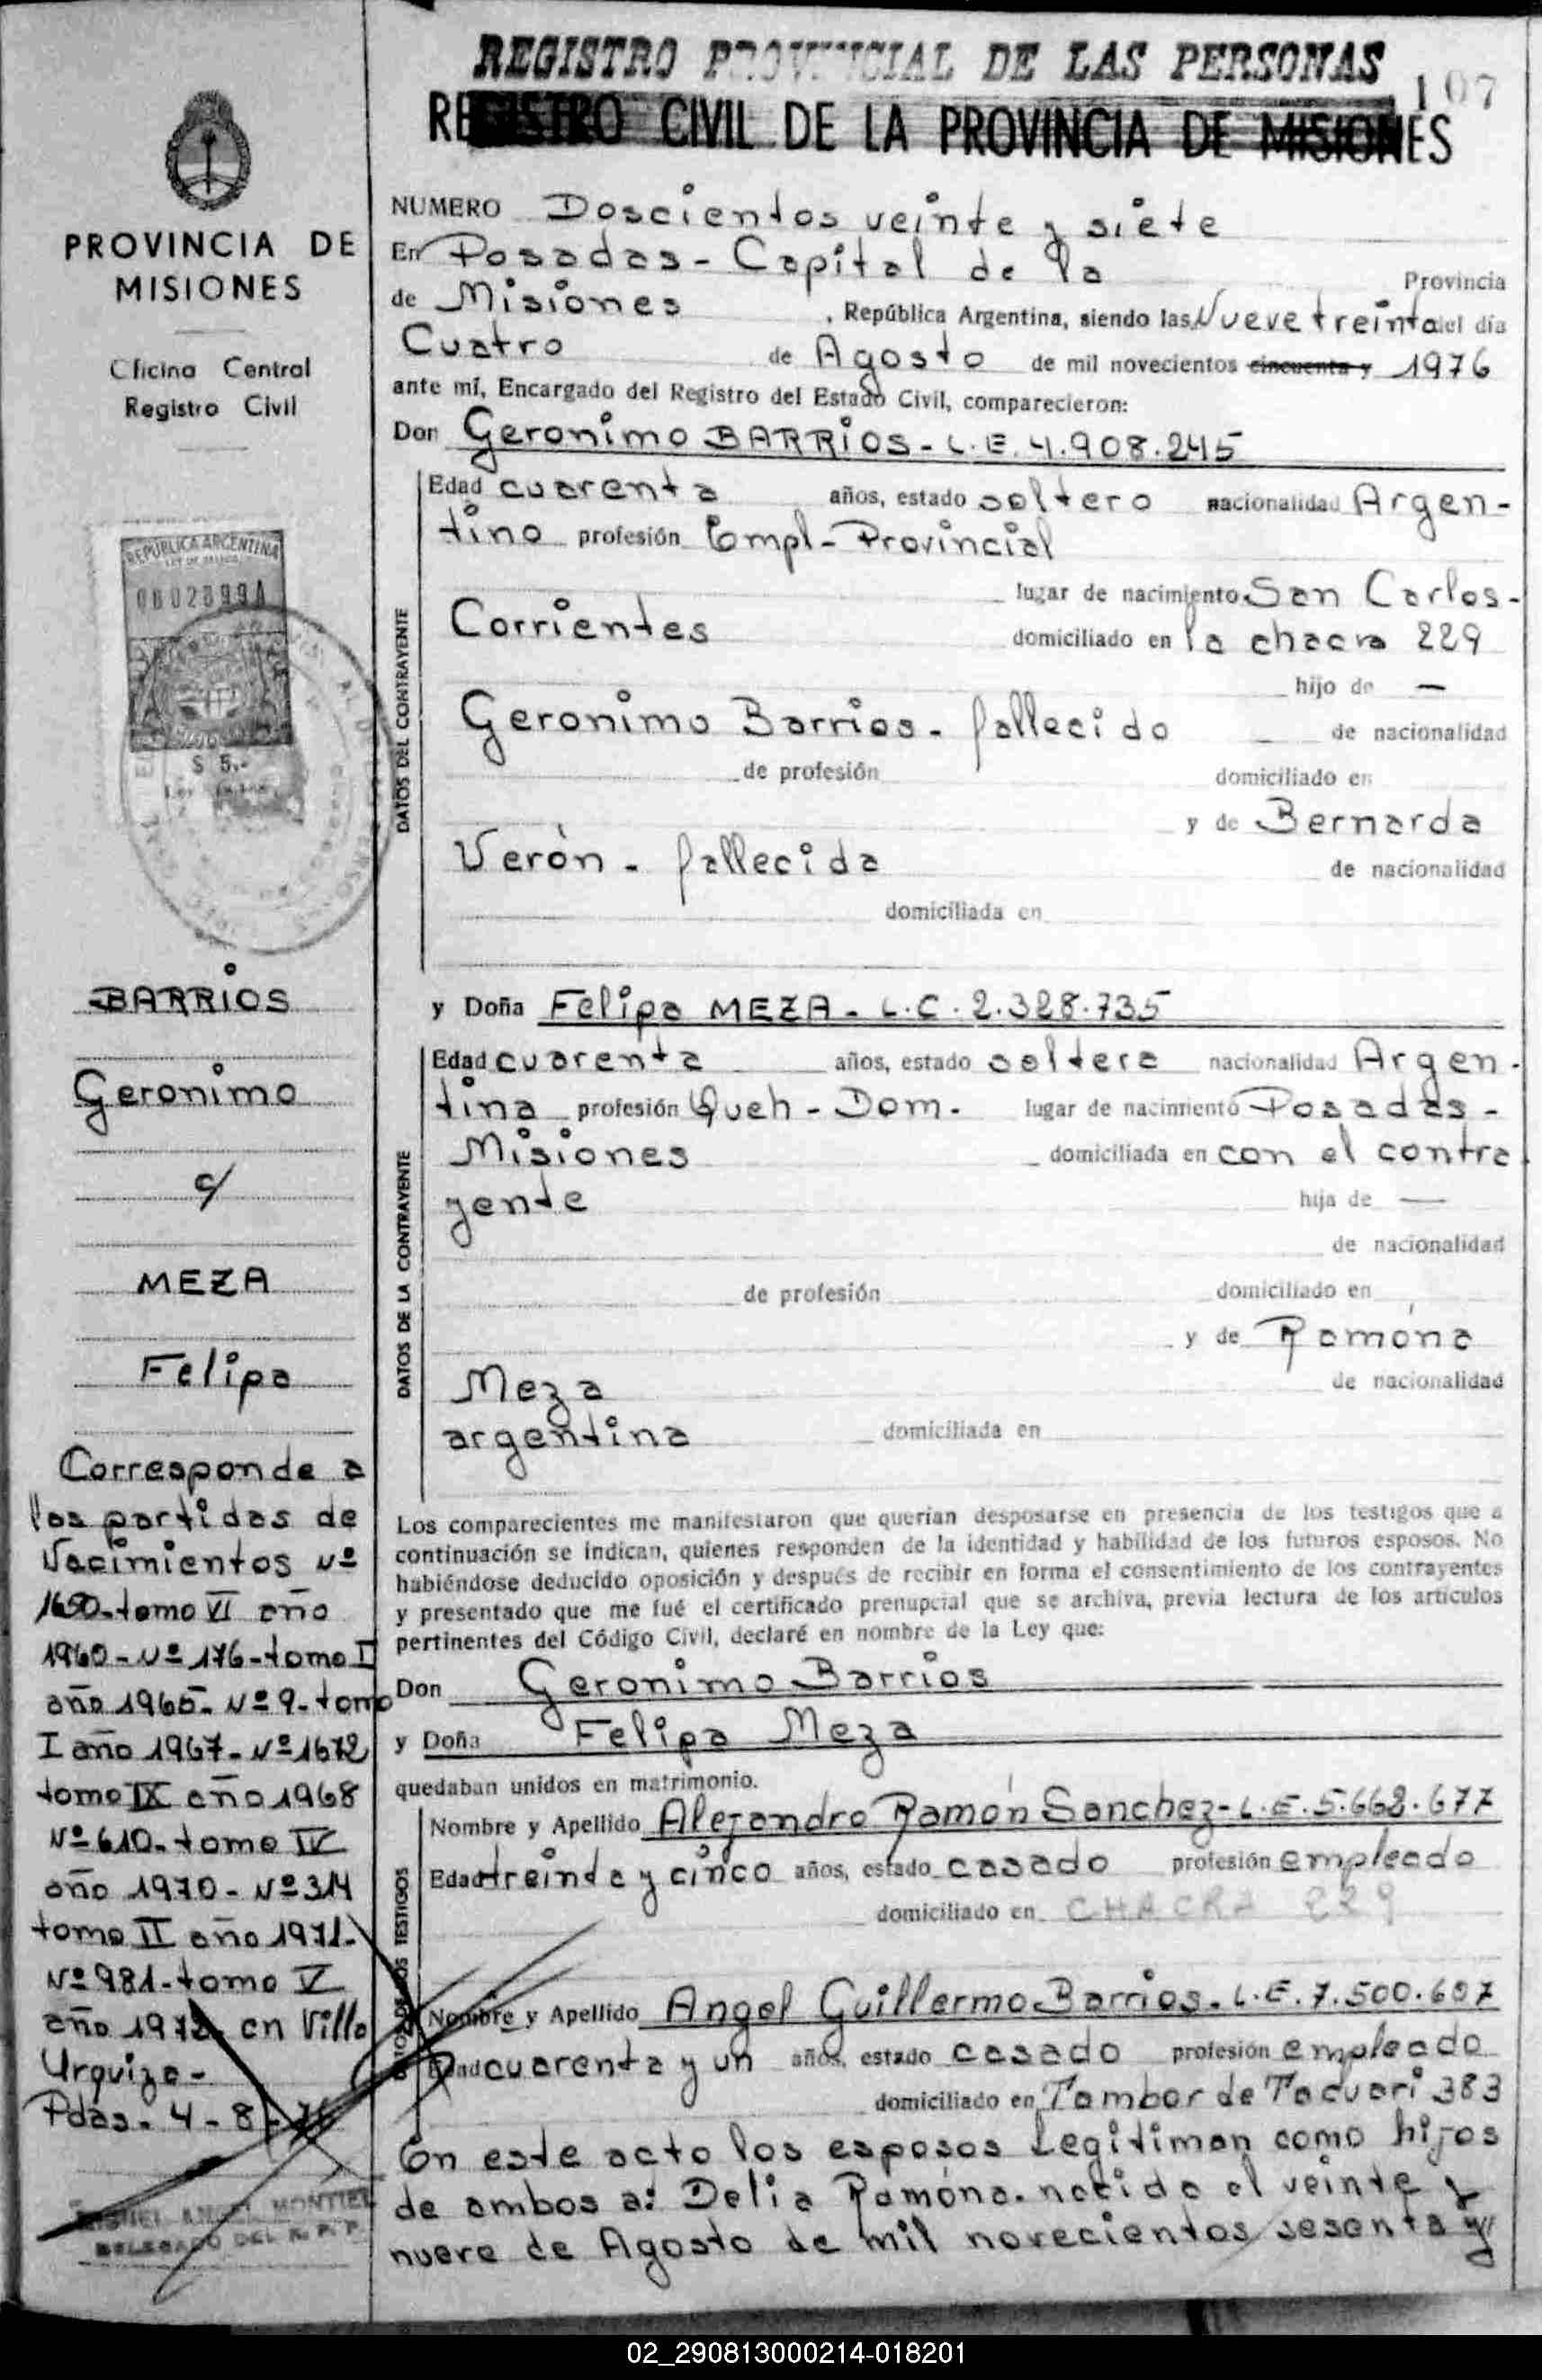 REGISTRO PROVINCIAL DE LAS PERSONAS
107
REGISTRO CIVIL DE LA PROVINCIA DE MISIONES
PROVINCIA DE
MISIONES
Oficina Central
Registro Civil
REPUBLICA ARGENTINA
$ 5.-
BARRIOS
Geronimo
c/
MEZA
Felipa
Corresponde a
las partidas de
Nacimientos Nº
1650-tomo VI año
1960-Nº 176-tomo II
año 1965-Nº 9-tomo
I año 1967-Nº 1672
tomo IX año 1968
Nº 610-tomo IV
año 1970-Nº 314
tomo II año 1971-
Nº 981-tomo V
año 1972 en Villa
Urquiza-
Pdas- 4-8-76
MIGUEL ANGEL MONTIEL
DELEGADO DEL R. P. P.
NUMERO Doscientos veinte y siete
En Posadas-Capital de la Provincia
de Misiones, República Argentina, siendo las Nueve treinta del día
Cuatro de Agosto de mil novecientos cincuenta y 1976
ante mí, Encargado del Registro del Estado Civil, comparecieron:
Don Geronimo BARRIOS-L.E. 4.908.245
DATOS DEL CONTRAYENTE
Edad cuarenta años, estado soltero nacionalidad Argen-
tino profesión Empl-Provincial
lugar de nacimiento San Carlos-
Corrientes domiciliado en la chacra 229
hijo de —
Geronimo Barrios-fallecido de nacionalidad
de profesión domiciliado en
y de Bernarda
Verón-fallecida de nacionalidad
domiciliada en
y Doña Felipa MEZA-L.C. 2.328.735
DATOS DE LA CONTRAYENTE
Edad cuarenta años, estado soltera nacionalidad Argen-
tina profesión Queh-Dom. lugar de nacimiento Posadas-
Misiones domiciliada en con el contra
yente hija de —
de nacionalidad
de profesión domiciliado en
y de Ramóna
Meza de nacionalidad
argentina domiciliada en
Los comparecientes me manifestaron que querían desposarse en presencia de los testigos que a
continuación se indican, quienes responden de la identidad y habilidad de los futuros esposos. No
habiéndose deducido oposición y después de recibir en forma el consentimiento de los contrayentes
y presentado que me fué el certificado prenupcial que se archiva, previa lectura de los artículos
pertinentes del Código Civil, declaré en nombre de la Ley que:
Don Geronimo Barrios
y Doña Felipa Meza
quedaban unidos en matrimonio.
DATOS DE LOS TESTIGOS
Nombre y Apellido Alejandro Ramón Sanchez-L.E. 5.662.677
Edad treinta y cinco años, estado casado profesión empleado
domiciliado en CHACRA 229
Nombre y Apellido Angel Guillermo Barrios-L.E. 7.500.697
Edad cuarenta y un años, estado casado profesión empleado
domiciliado en Tambor de Tacuari 383
En este acto los esposos Legitiman como hijos
de ambos a: Delia Ramóna-nacida el veinte y
nueve de Agosto de mil novecientos sesenta y
02_290813000214-018201